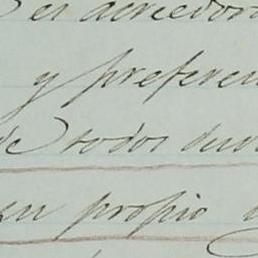 es acreedor
y preferen
de todos
su propio